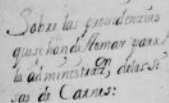 Sobre las providencias
que se han de tomar para
la administraz.on de las Si
sas de Carnes: